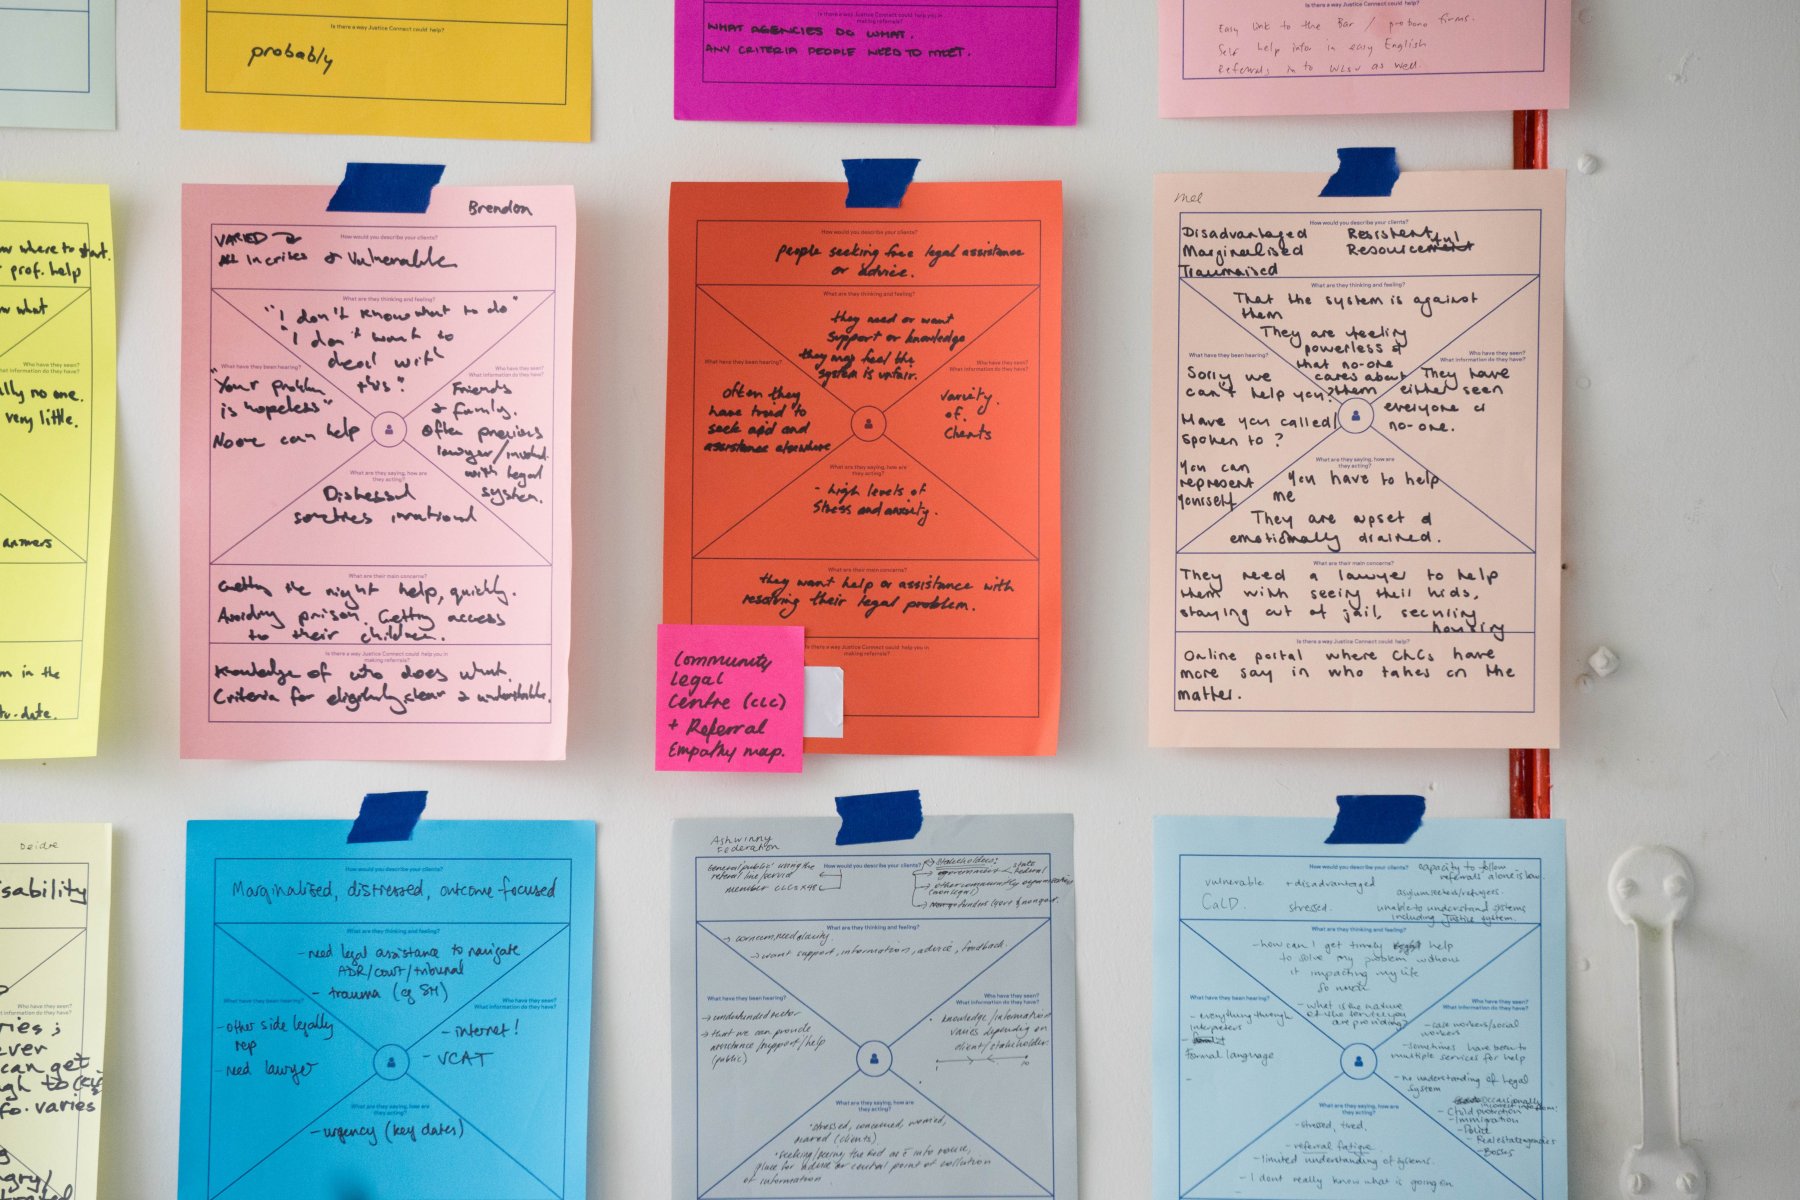 Is there a way Justice Connect could help?
probably
Is there a way Justice Connect could help you in
making referrals?
WHAT AGENCIES DO WHAT.
ANY CRITERIA PEOPLE NEED TO MEET.
Easy link to the Bar / probono firms.
Self help infor in easy English
Referrals in to WLSV as well.
where to start.
prof. help
what
no one.
very little.
answers
in the
date.
Brendon
How would you describe your clients?
VARIED
All In crises & Vulnerable
What are they thinking and feeling?
"I don't know what to do"
"I don't want to
deal with
this"
What have they been hearing?
"Your problem
is hopeless"
No one can help
Who have they seen?
What information do they have?
Friends
& family.
Often previous
lawyer/involved
with legal
system.
What are they saying, how are
they acting?
Distressed
sometimes irrational
What are their main concerns?
Getting the right help, quickly.
Avoiding prison. Getting access
to their children.
Is there a way Justice Connect could help you in
making referrals?
Knowledge of who does what.
Criteria for eligibility, clear & understandable.
How would you describe your clients?
people seeking free legal assistance
or advice.
What are they thinking and feeling?
they need or want
support or knowledge
they may feel the
system is unfair.
What have they been hearing?
often they
have tried to
seek aid and
assistance elsewhere
Who have they seen?
What information do they have?
variety
of
clients
What are they saying, how are
they acting?
- high levels of
stress and anxiety.
What are their main concerns?
they want help or assistance with
resolving their legal problem.
Is there a way Justice Connect could help you in
making referrals?
Community
Legal
Centre (CLC)
+ Referral
Empathy map.
Mel
How would you describe your clients?
Disadvantaged Resistent
Marginalised Resourceful
Traumatised
What are they thinking and feeling?
That the system is against
them
They are feeling
powerless &
that no-one
cares about
them
What have they been hearing?
Sorry we
can't help you?
Have you called/
spoken to?
You can
represent
yourself
Who have they seen?
What information do they have?
They have
either seen
everyone or
no-one.
What are they saying, how are
they acting?
You have to help
me
They are upset &
emotionally drained.
What are their main concerns?
They need a lawyer to help
them with seeing their kids,
staying out of jail, securing
housing
Is there a way Justice Connect could help?
Online portal where CLCs have
more say in who takes on the
matter.
Deidre
varies
How would you describe your clients?
Marginalised, distressed, outcome focused
What are they thinking and feeling?
- need legal assistance to navigate
ADR/court/tribunal
- trauma (eg SH)
What have they been hearing?
- other side legally
rep
- need lawyer
Who have they seen?
What information do they have?
- internet!
- VCAT
What are they saying, how are
they acting?
- urgency (key dates)
Ashwinny
Federation
How would you describe your clients?
general public using the
referral line/service
member CLCs x48
Stakeholders:
government
state
Federal
other community organisations
(non legal)
What are they thinking and feeling?
→ concern, need clarity
→ want support, information, advice, feedback.
What have they been hearing?
→ underfunded sector
→ that we can provide
assistance/support/help
(public)
Who have they seen?
What information do they have?
knowledge/information
varies depending on
client/stakeholder
What are they saying, how are
they acting?
• stressed, concerned, worried,
scared (clients)
of information
How would you describe your clients?
capacity to follow
referrals alone is low.
vulnerable + disadvantaged
CaLD. stressed.
asylum seekers/refugees.
unable to understand systems
including Justice system.
What are they thinking and feeling?
- how can I get timely help
to solve my problem without
it impacting my life
so much
- what is the nature
of the service you
are providing?
What have they been hearing?
- everything through
interpreters
formal language
Who have they seen?
What information do they have?
- case workers/social
workers
- sometimes have been to
multiple services for help
- no understanding of Legal
system
- Child protection
- Immigration
- Police
- Real estate agencies
- Bosses
What are they saying, how are
they acting?
- stressed, tired,
- referral fatigue
- limited understanding of systems.
- I dont really know what is going on